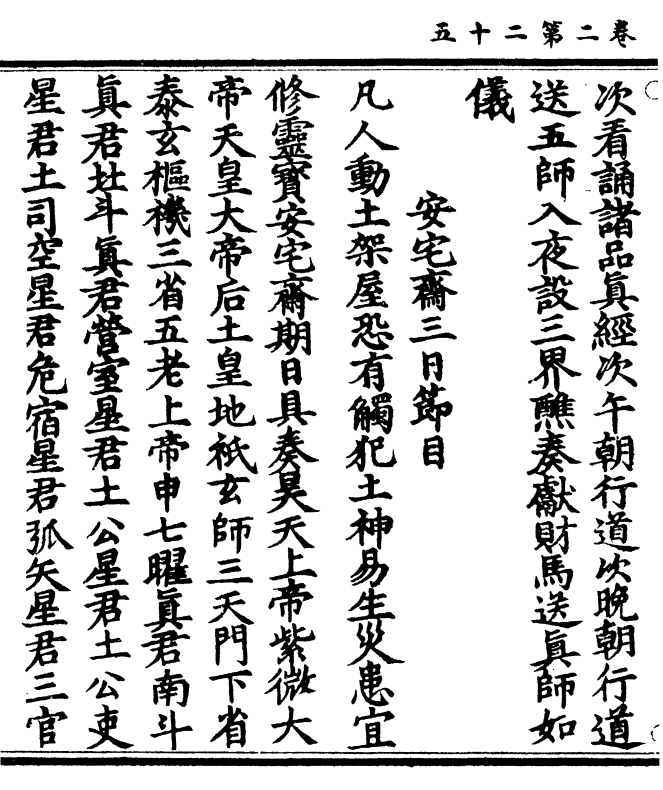 卷二第二十五
次看誦諸品眞經次午朝行道次晚朝行道
送五師入夜設三界醮奏獻財馬送眞師如
儀
安宅齋三日節目
凡人動土架屋恐有觸犯土神易生災患宜
修靈寶安宅齋期日具奏昊天上帝紫微大
帝天皇大帝后土皇地祇玄師三天門下省
泰玄樞機三省五老上帝申七曜眞君南斗
眞君北斗眞君營室星君土公星君土公吏
星君土司空星君危宿星君弧矢星君三官